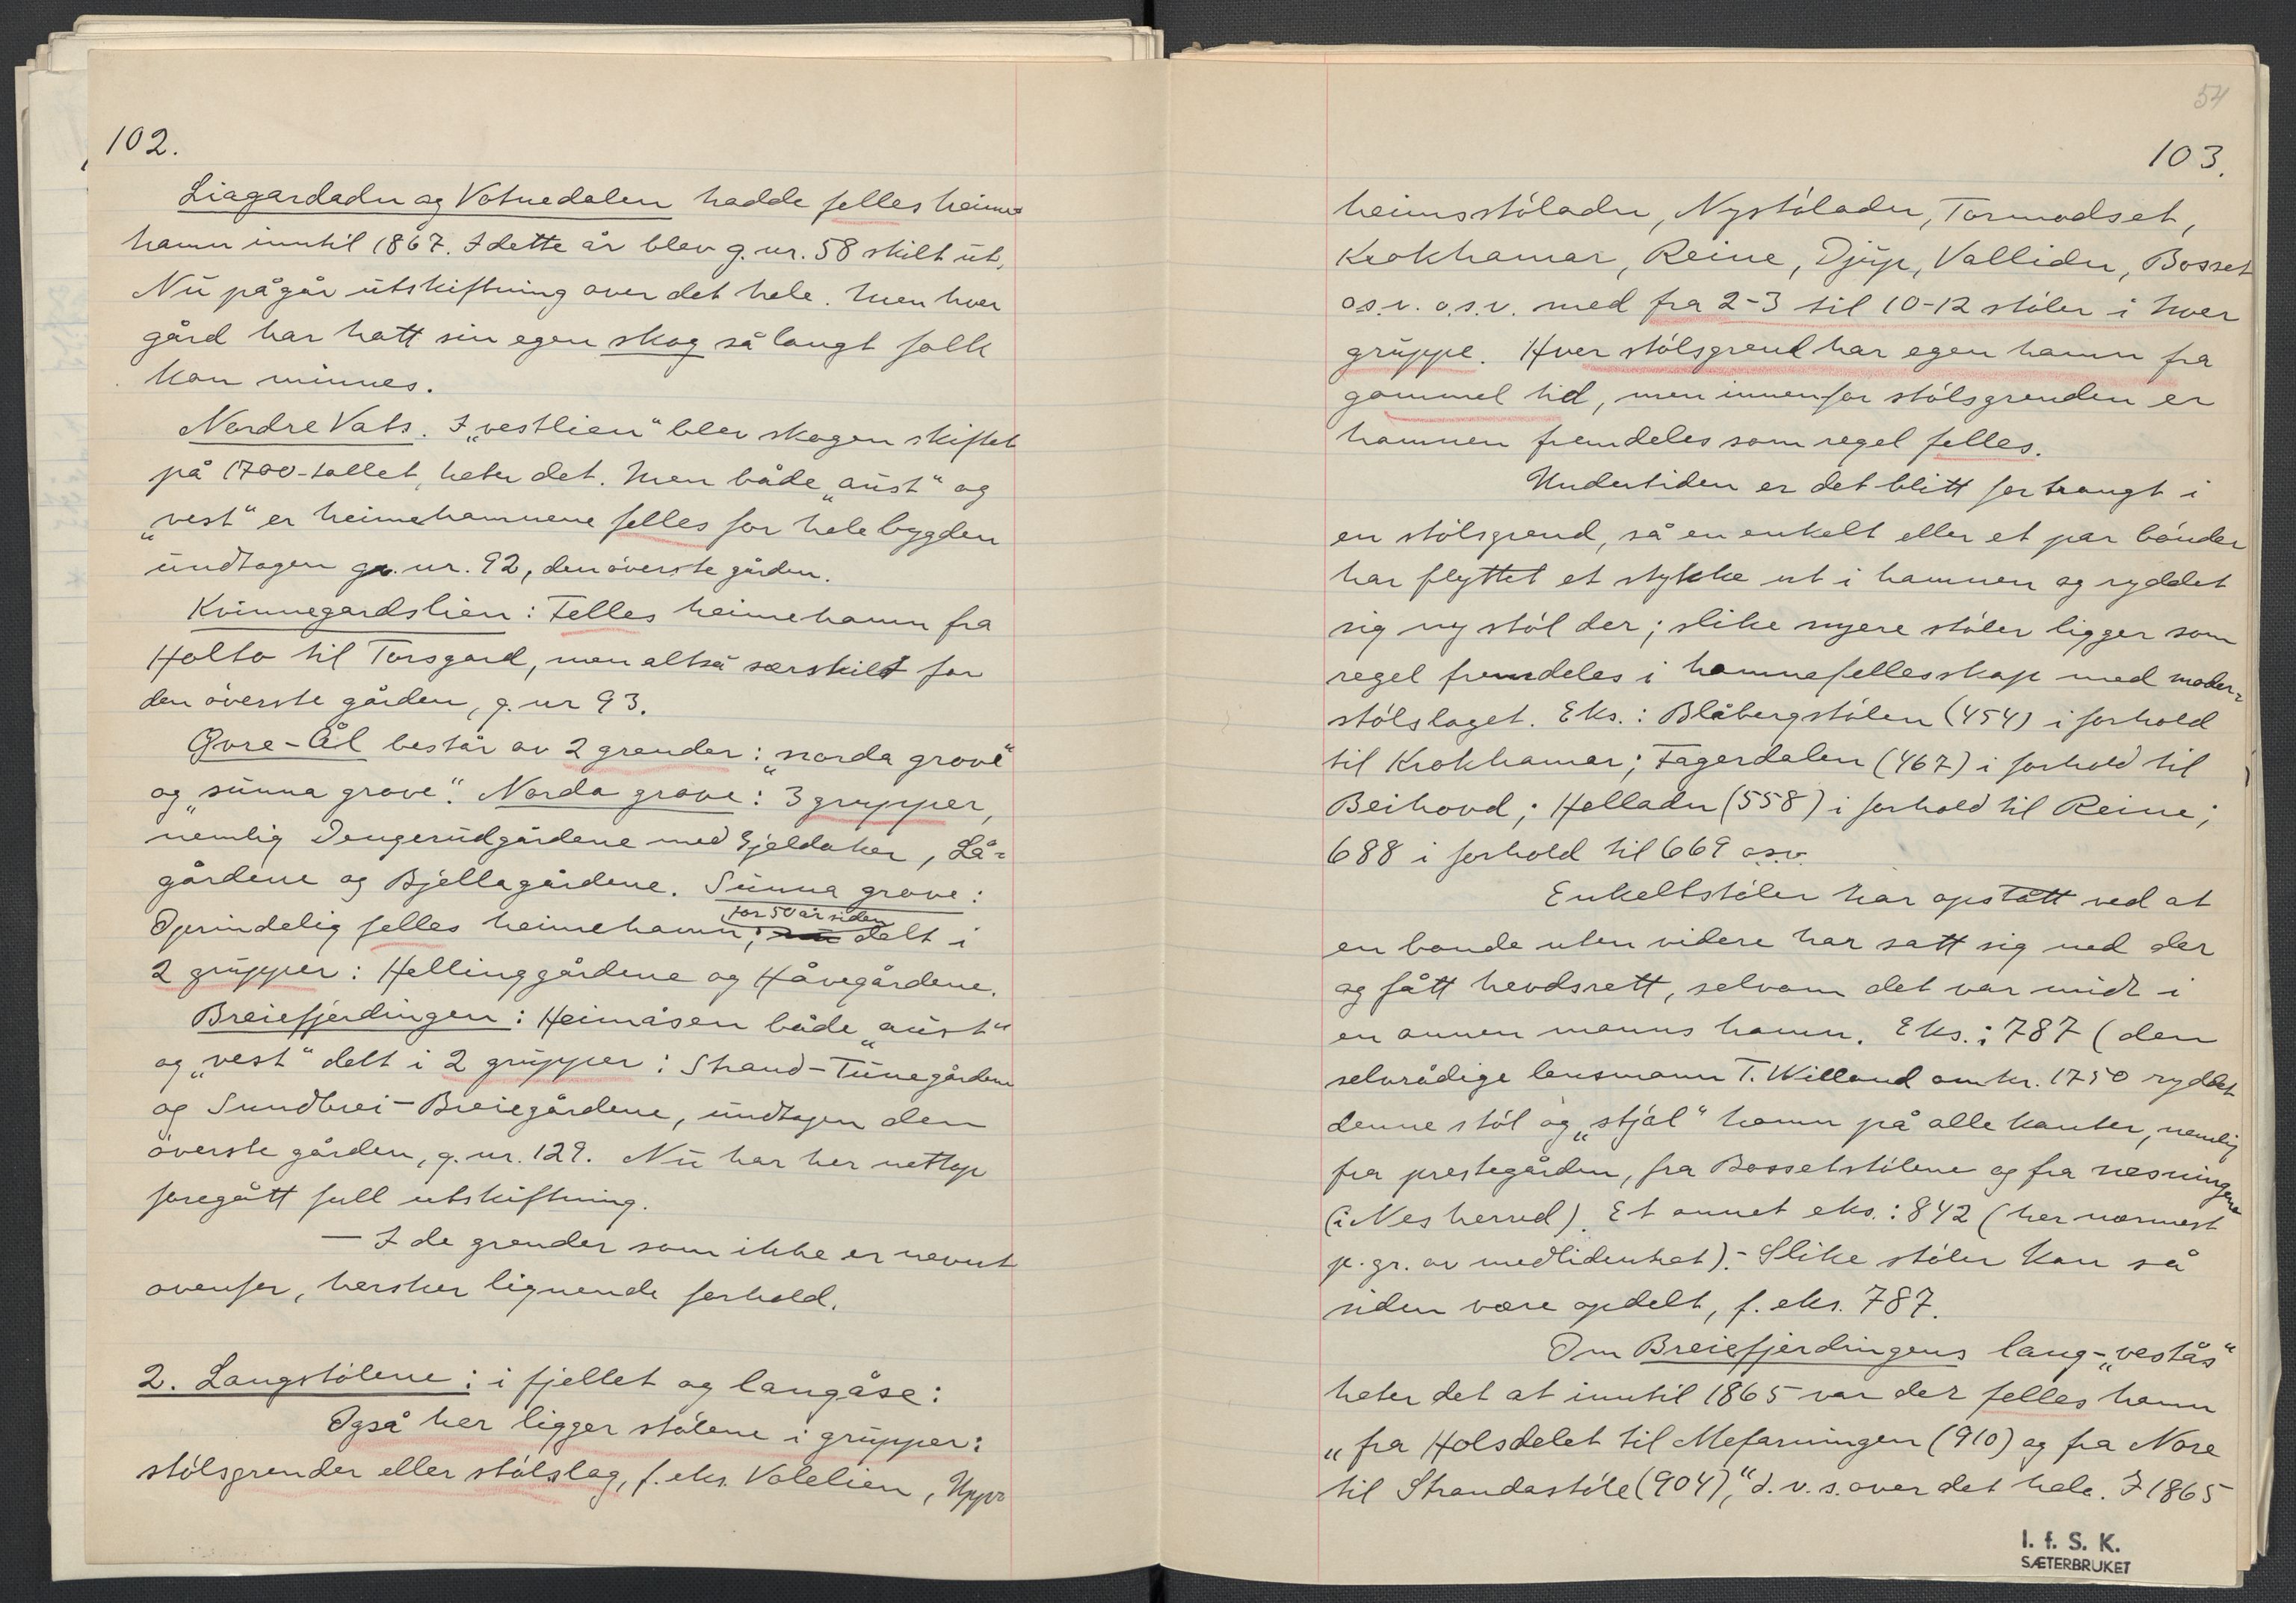 102.
Liagardadn og Votnedalen hadde felles heime
hamn inntil 1867. I dette år blev g.nr. 58 skilt ut.
Nu pågår utskiftning over det hele. Men hver
gård har hatt sin egen skog så langt folk
kan minnes.
Nordre Vats. I „vestlien" blev skogen skiftet
på 1700-tallet, heter det. Men både „aust" og
„vest" er heimehamnene felles for hele bygden
undtagen gr. nr. 92, den överste gården.
Kvinnegardslien: Felles heimehamn fra
Holto til Torsgard, men altså særskilt for
den överste gården, g. nr 93.
Øvre-Ål består av 2 grender: „norda grove"
og „sunna grove". Norda grove: 3 grupper,
nemlig Dengerudgårdene med Gjeldaker, Lå-
gårdene og Bjellagårdene. Sunna grove:
for 50 år siden
Oprindelig felles heimehamn; delt i
2 grupper: Hellinggårdene og Håvegårdene.
Breiefjerdingen: Heimåsen både „aust"
og „vest" delt i 2 grupper: Strand-Tunegårdene
og Sundbrei-Breiegårdene, undtagen den
överste gården, g. nr. 129. Nu har her nettop
foregått full utskiftning.
— I de grender som ikke er nevnt
ovenfor, hersker lignende forhold.
2. Langstölene: i fjellet og langåse:
Også her ligger stölene i grupper:
stölsgrender eller stölslag, f. eks. Volelien, Upps
54
103.
heimsstöladn, Nystöladn, Tormodset,
Krokhamar, Reine, Djup, Vallidn, Bosset
o.s.v. o.s.v. med fra 2-3 til 10-12 stöler i hver
gruppe. Hver stölsgrend har egen hamn fra
gammel tid, men innenfor stölsgrenden er
hamnen fremdeles som regel felles.
Undertiden er det blitt for trangt i
en stölsgrend, så en enkelt eller et par bönder
har flyttet et stykke ut i hamnen og ryddet
sig ny stöl der; slike nyere stöler ligger som
regel fremdeles i hamnefellesskap med moder-
stölslaget. Eks.: Blåbergstölen (454) i forhold
til Krokhamar; Fagerdalen (467) i forhold til
Beihovd; Helladn (558) i forhold til Reine;
688 i forhold til 669 osv.
Enkeltstöler har opstått ved at
en bonde uten videre har satt sig ned der
og fått hevdsrett, selvom det var midt i
en annen manns hamn. Eks.: 787 (den
selvrådige lensmann T. Willand omkr. 1750 ryddet
denne stöl og „stjal" hamn på alle kanter, nemlig
fra prestegården, fra Bossetstölene og fra næsningene
(i Nes herred). Et annet eks.: 842 (her nærmest
p. gr. av medlidenhet).- Slike stöler kan så
siden være opdelt, f. eks. 787.
Om Breiefjerdingens lang-„vestås"
heter det at inntil 1865 var der felles hamn
„fra Holsdelet til Mefarningen (910) og fra Nore
til Strandastöle (904)," d. v. s. over det hele. I 1865
I. f. S. K.
SÆTERBRUKET